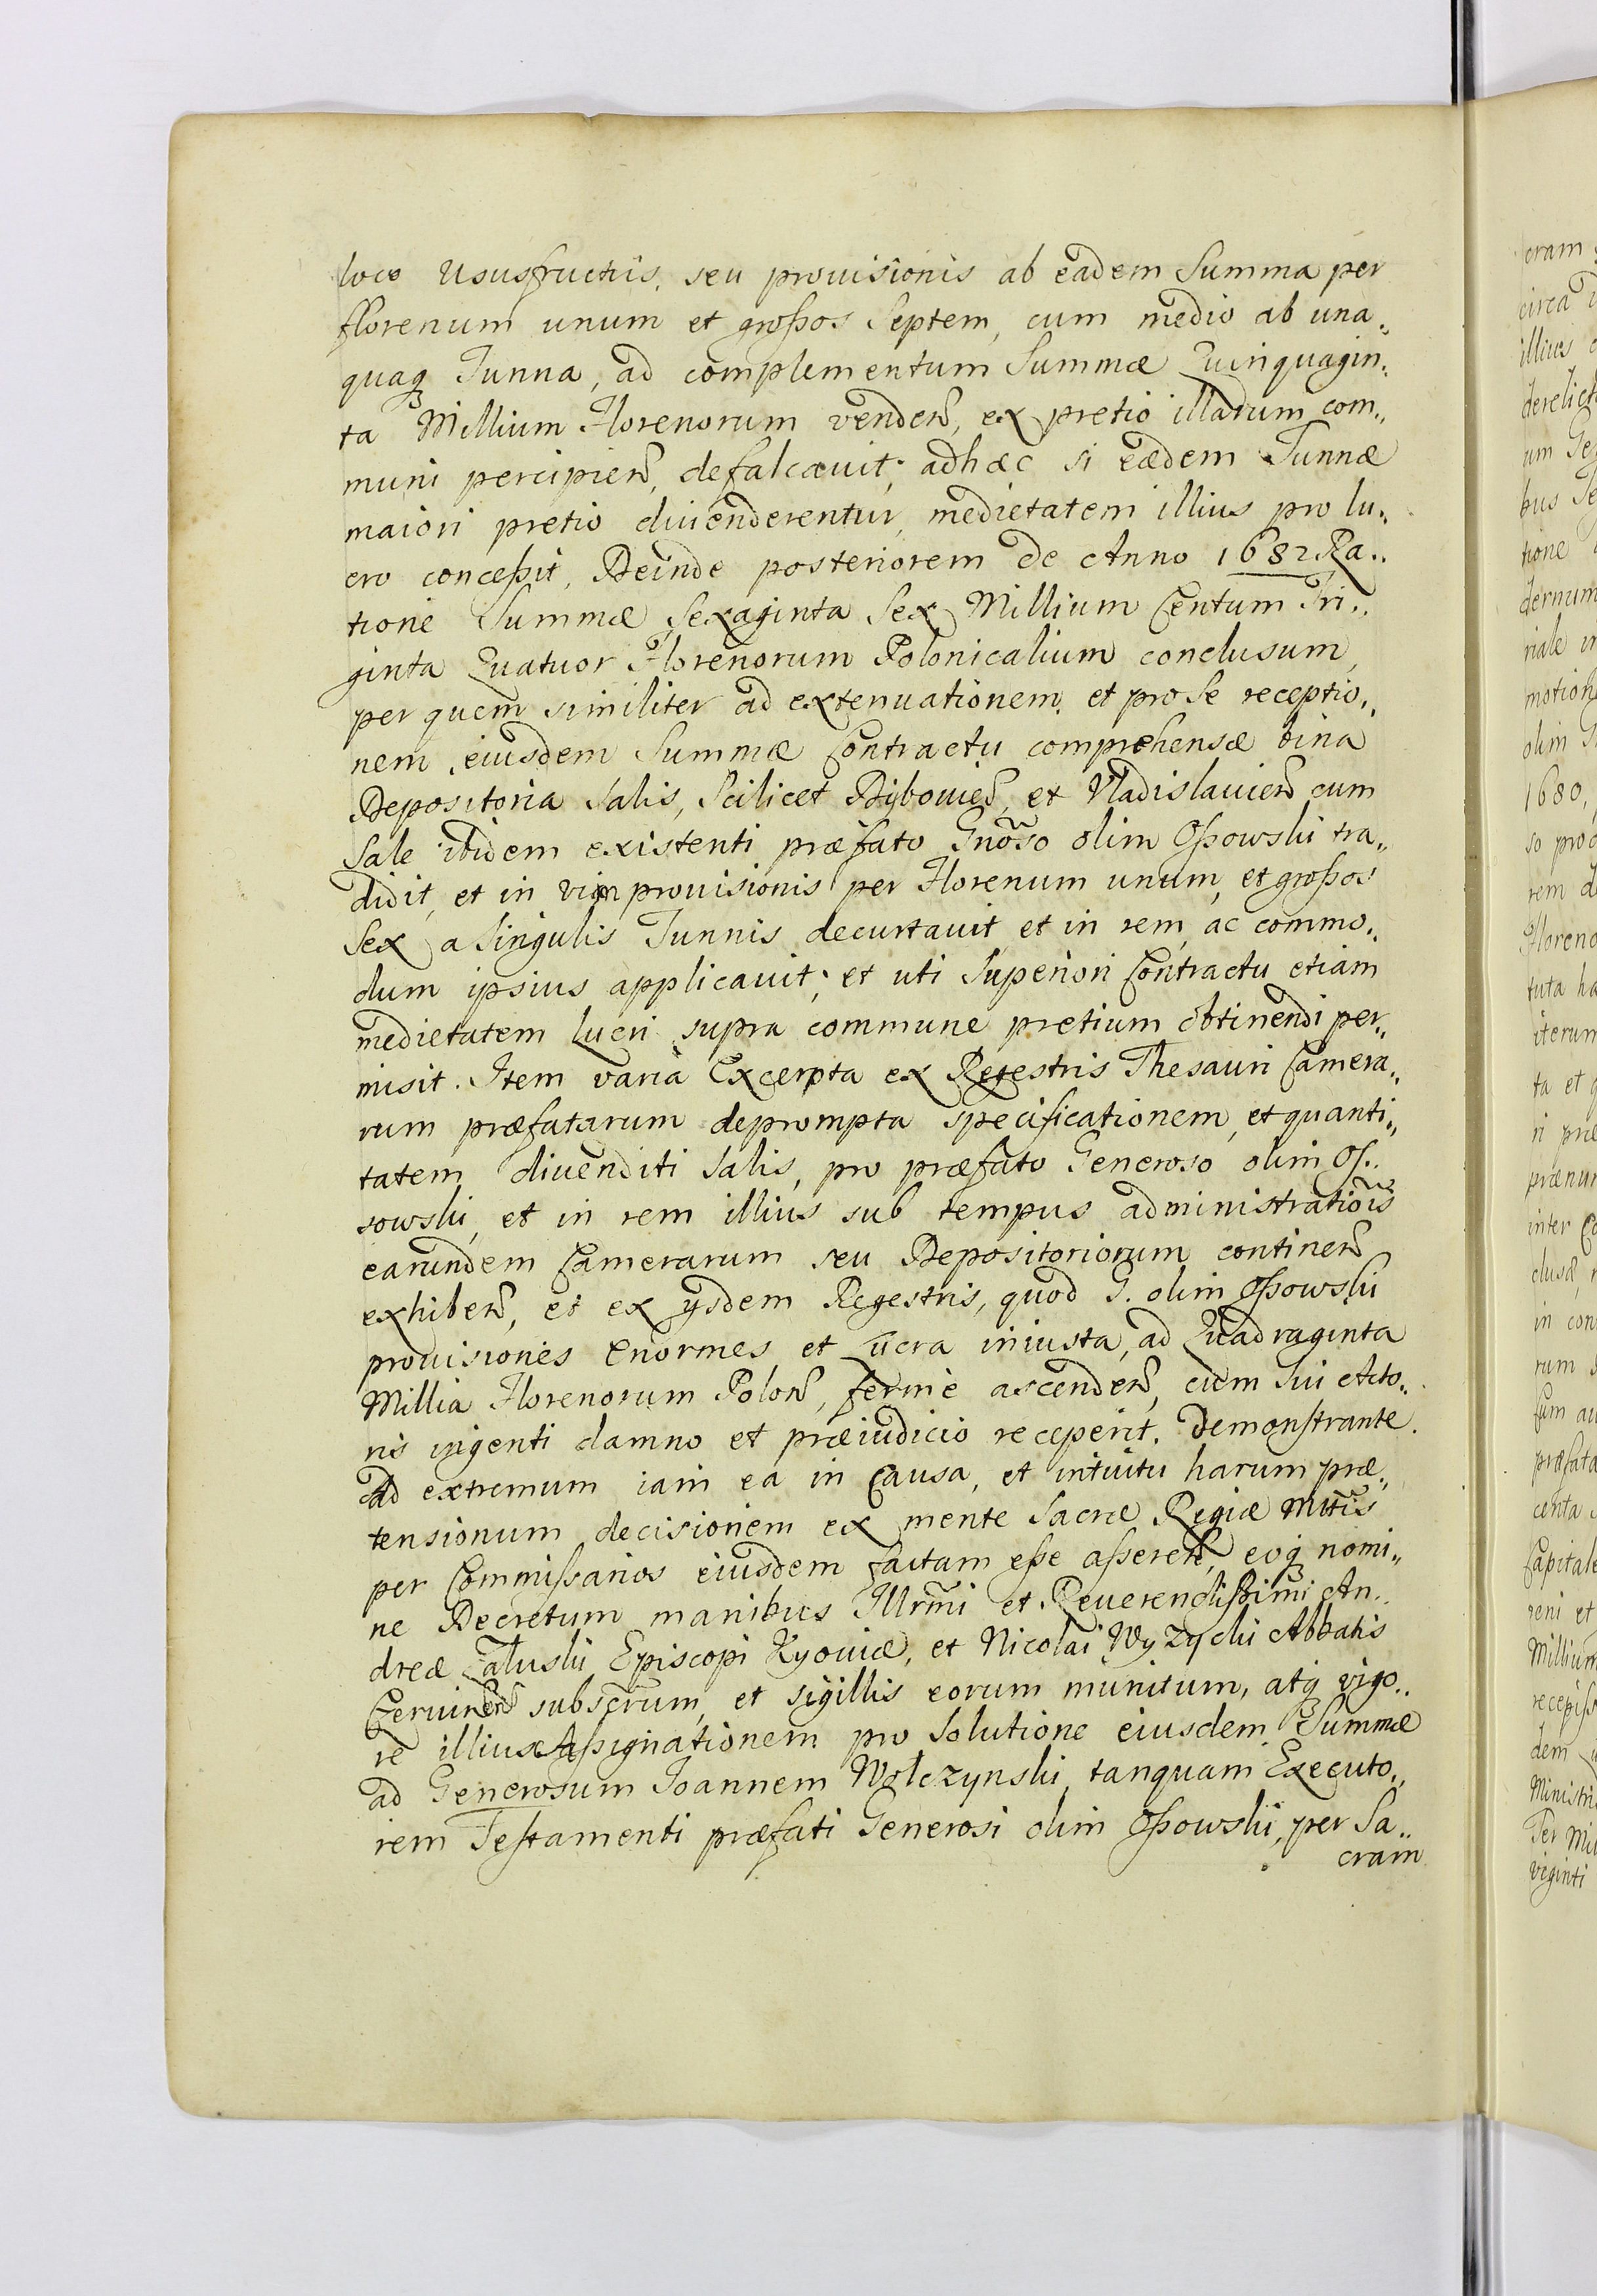 loco Ususfructus, seu prouisionis ab eadem Summa per
florenum unum et großos Septem, cum medio ab una„
quaq₃ Tunna, ad complementum Summæ Quinquagin„
ta Millium Florenorum venden̄, ex pretio illarum com„
muni percipien̄, defalcauit, adhæc si eædem Tunnæ
maiori pretio diuenderentur, medietatem illius pro lu„
cro conceßit, Deinde posteriorem de Anno 1682 Ra„
tione Summæ Sexaginta Sex Millium Centum Tri„
ginta Quatuor Florenorum Polonicalium conclusum,
per quem similiter ad extenuationem, et pro Se receptio„
nem eiusdem Summæ Contractu comprehensæ bina
Depositoria Salis, Scilicet Dybouien̄, et Vladislauien̄ cum
Sale ibidem existenti, præfato Gnõso olim Oßowski tra„
didit, et in vim prouisionis per Florenum unum, et großos
Sex a Singulis Tunnis decurtauit, et in rem, ac commo„
dum ipsius applicauit; et uti Superiori Contractu etiam
medietatem lucri supra commune pretium obtinendi per„
misit. Item varia Excerpta ex Regestris Thesauri Camera„
rum præfatarum deprompta specificationem, et quanti„
tatem diuenditi Salis, pro præfato Generoso olim Os„
sowski, et in rem illius sub tempus administratiõis
earundem Camerarum seu Depositoriorum continen̄
exhiben̄, et ex ijsdem Regestris, quod G. olim Oßowski
prouisiones Enormes et Lucra iniusta, ad Quadraginta
Millia Florenorum Polon̄, ferme ascenden̄, cum Sui Acto„
ris ingenti damno et præiudicio receperit. Demonstrante
ad extremum iam ea in Causa, et intuitu harum præ„
tensionum decisionem ex mente Sacræ Regiæ Mttis
per Commissarios eiusdem factam eße aßeren̄, eoq₃ nomi„
ne Decretum manibus Illrmi et Reuerendißimi An„
dreæ Załuski Episcopi Kyouiæ, et Nicolai Wyzycki Abbatis
Czeruinen̄ subscrum, et sigillis eorum munitum, atq₃ vigo„
re illius Aßignationem pro Solutione eiusdem Summæ
ad Generosum Joannem Wolczynski, tanquam Executo„
rem Testamenti præfati Generosi olim Oßowski, per Sa„
cram